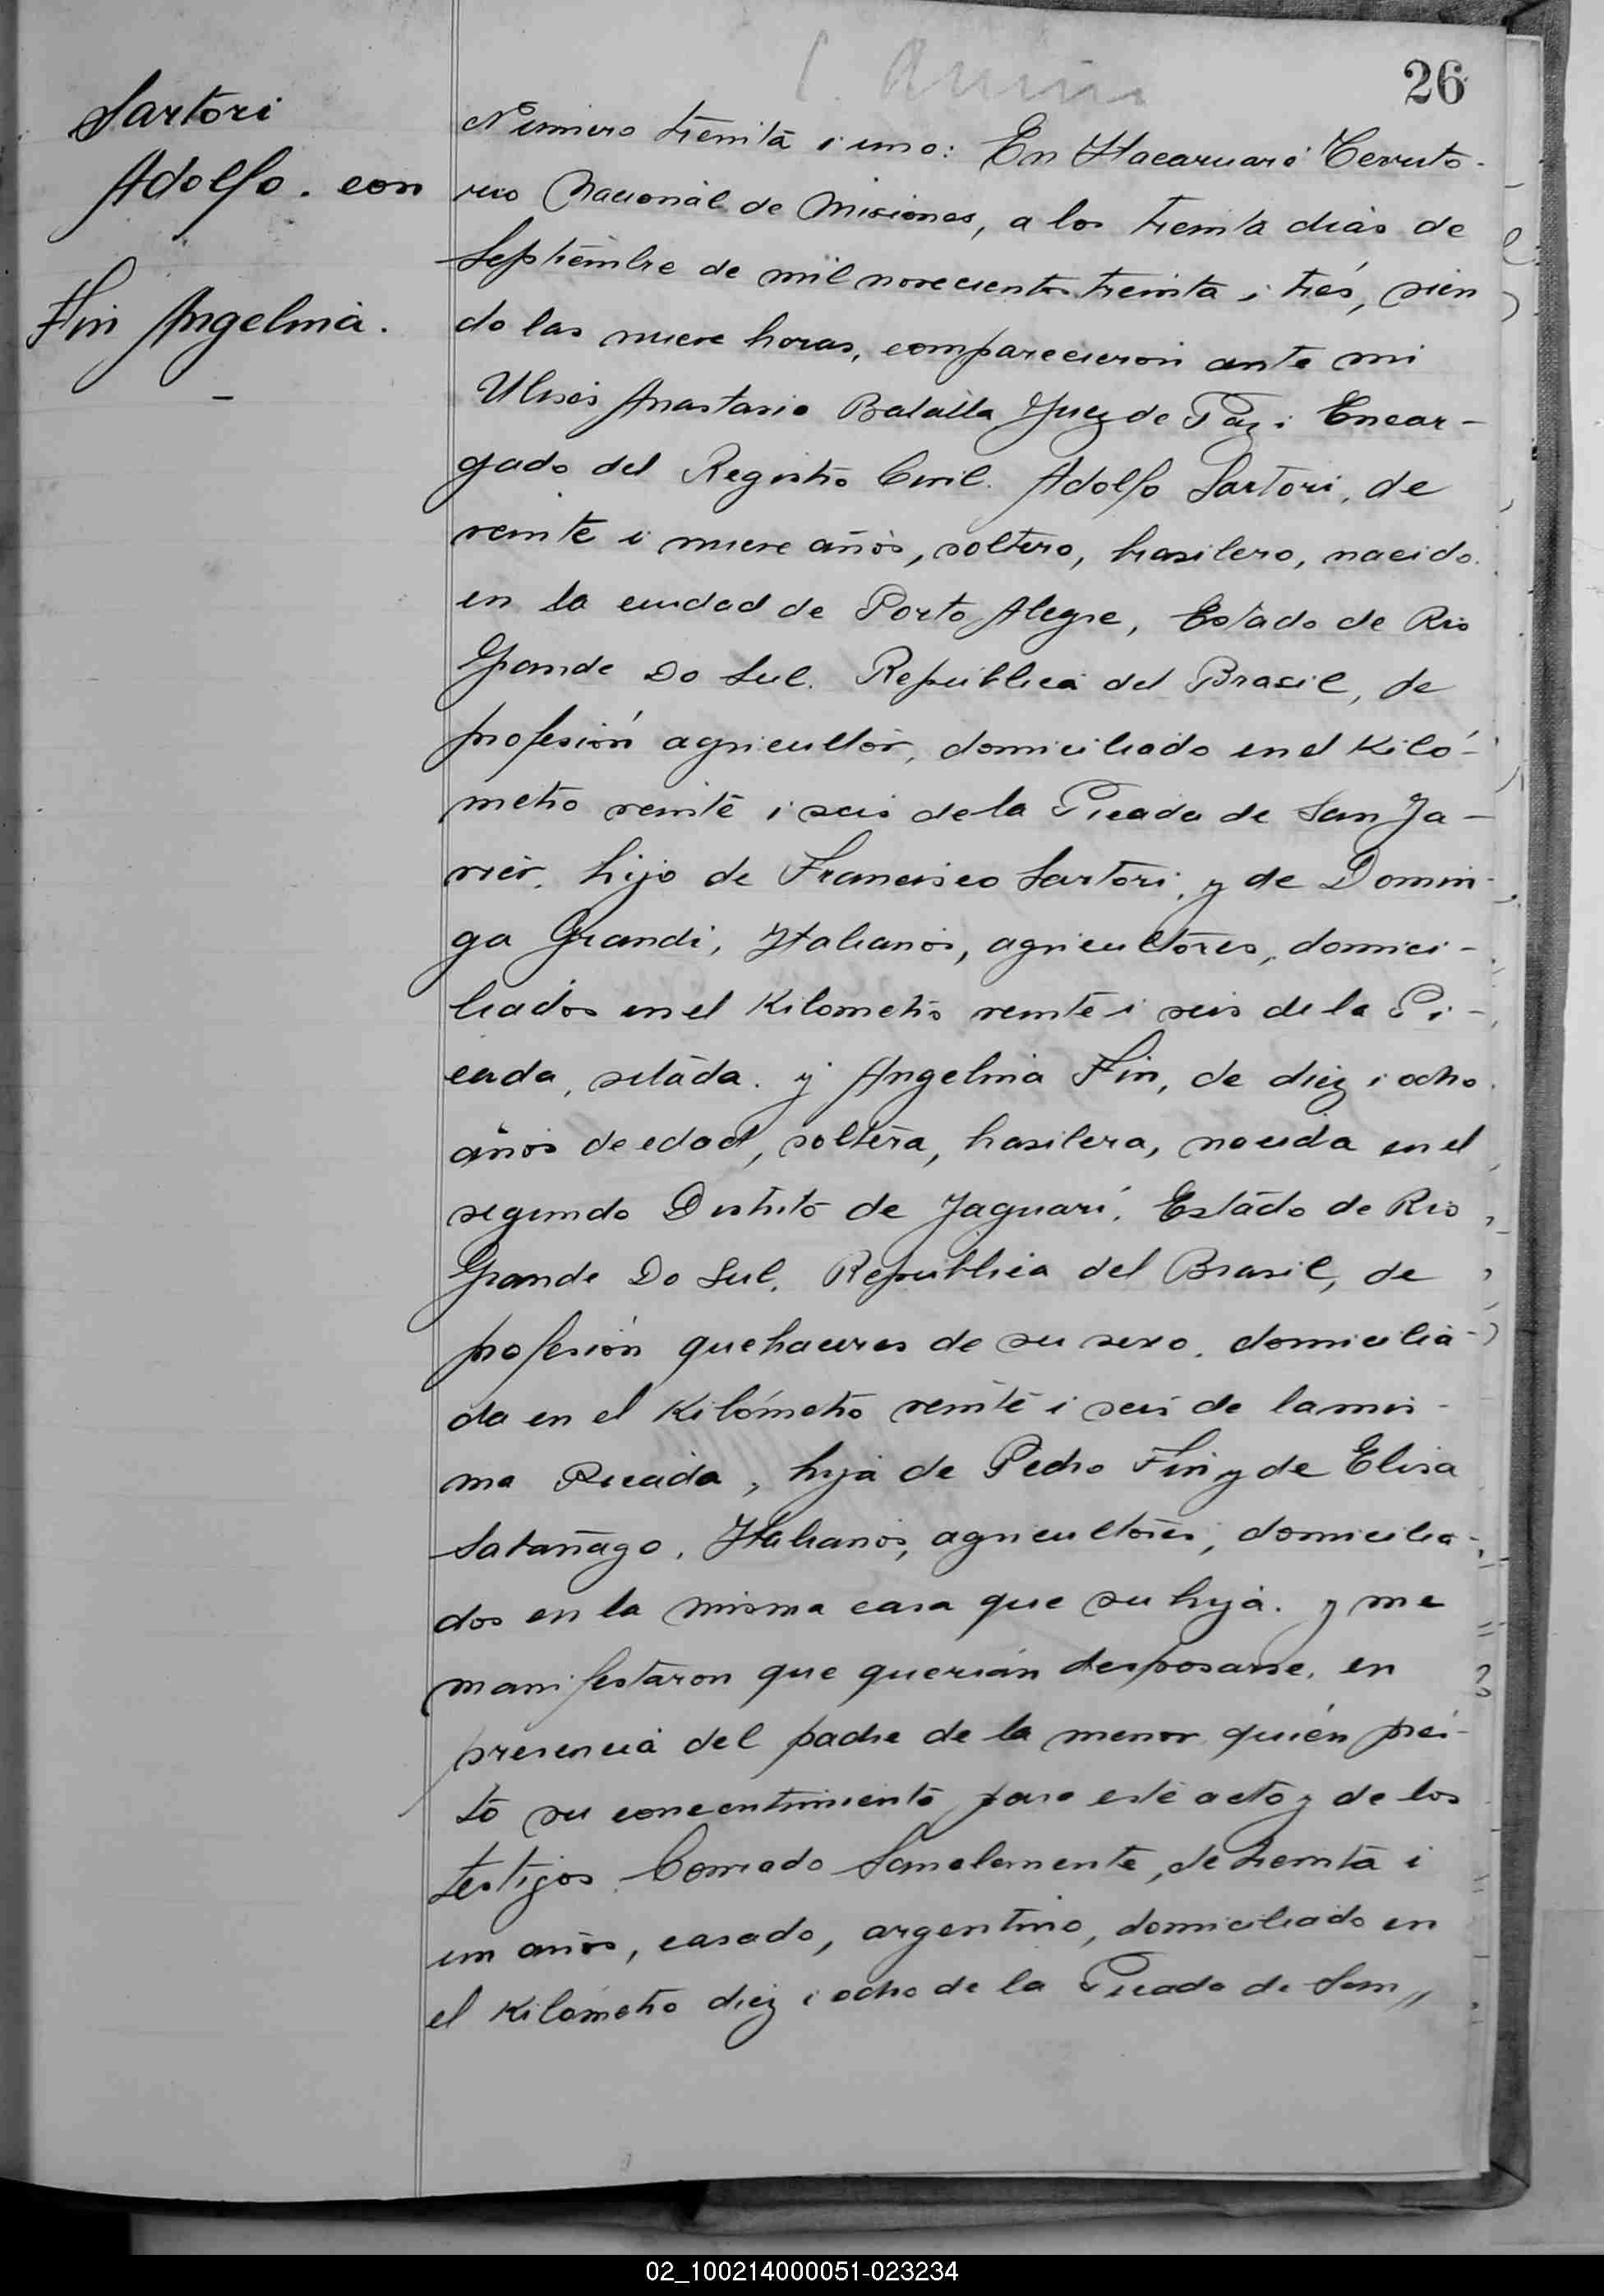 26
Sartori
Adolfo. con
Fin Angelina.
Número treinta i uno: En Itacaruaré Territo-
rio Nacional de Misiones, a los treinta dias de
Septiembre de mil novecientos treinta i trés, sien
do las nueve horas, comparecieron ante mi
Ulises Anastasio Batalla Juez de Paz i Encar-
gado del Registro Civil. Adolfo Sartori, de
veinte i nueve años, soltero, brasilero, nacido
en la ciudad de Porto Alegre, Estado de Rio
Grande Do Sul. República del Brasil, de
profesión agricultor, domiciliado en el Kiló-
metro veinte i seis de la Picada de San Ja-
vier, hijo de Francisco Sartori, y de Domin-
ga Grandi, Italianos, agricultores, domici-
liados en el Kilometro veinte i seis de la Pi-
cada, citada. y Angelina Fin, de diez i ocho
años de edad, soltera, brasilera, nacida en el
segundo Distrito de Jaguarí, Estado de Rio
Grande Do Sul, República del Brasil, de
profesión quehaceres de su sexo, domicilia-
da en el Kilómetro veinte i seis de la mis-
ma Picada, hija de Pedro Fin y de Elisa
Italianos, agricultores, domicilia-
dos en la misma casa que su hija. y me
manifestaron que querián desposarse, en
presencia del padre de la menor quién prés-
to su concentimiento para este acto y de los
testigos Conrado Sanclemente, de treinta i
un años, casado, argentino, domiciliado en
el Kilómetro diez i ocho de la Picada de San //
02_100214000051-023234